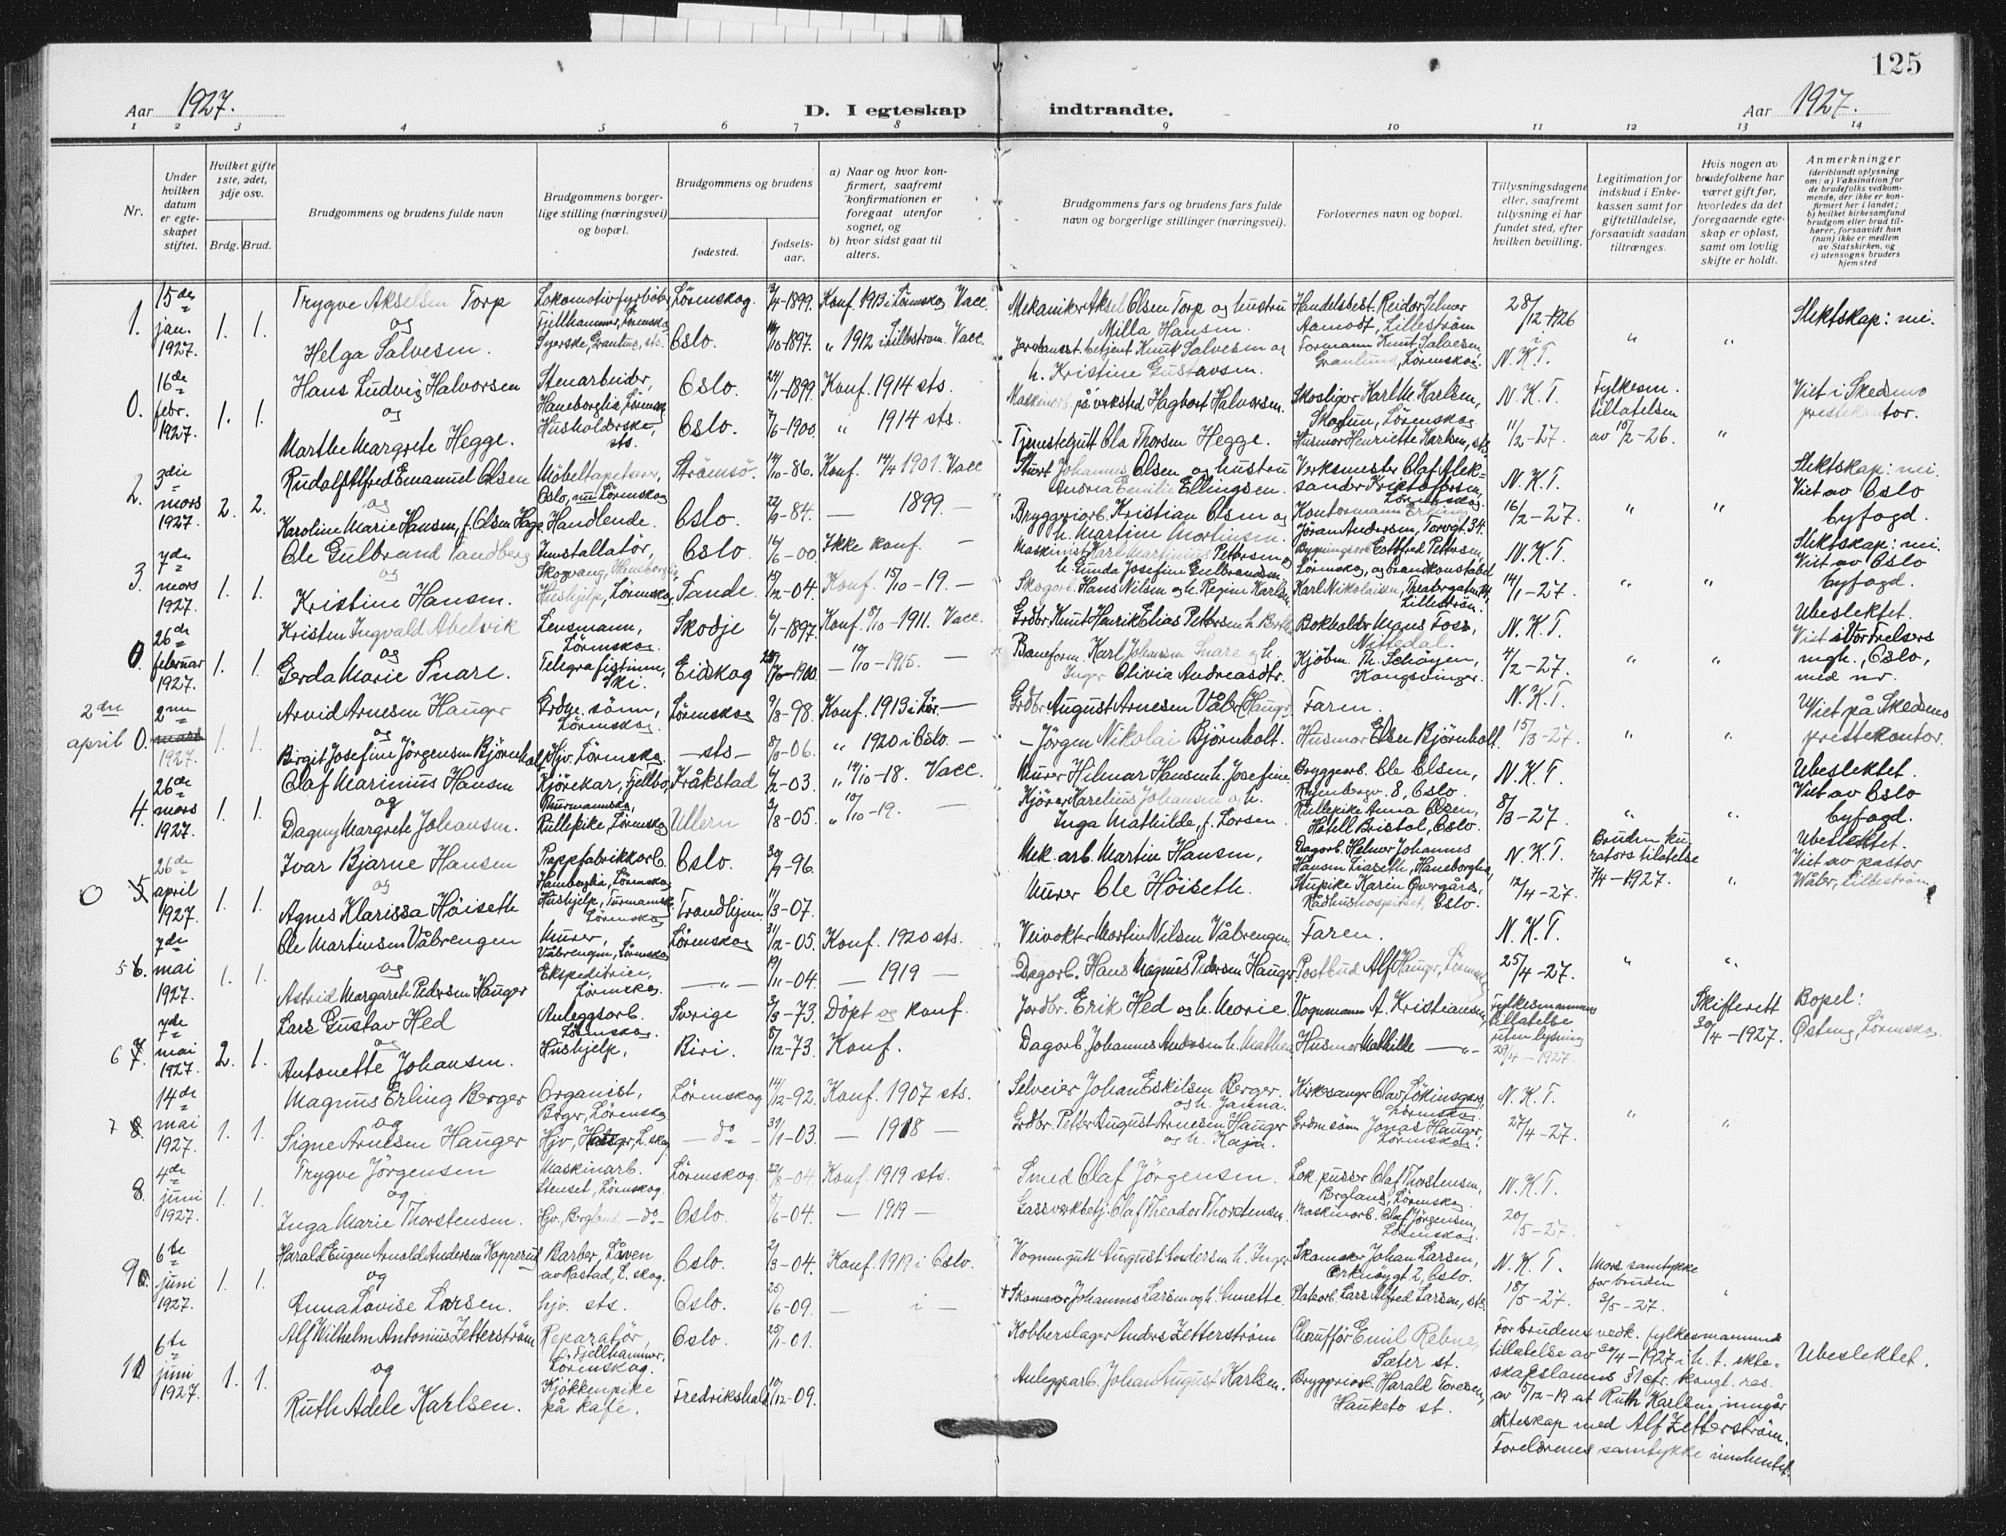 125
Aar 1927. D. I egteskap indtraadte. Aar 1927.
1 2 3 4 5 6 7 8 9 10 11 12 13 14
Nr.
Under hvilken datum er egteskapet stiftet.
Hvilket gifte 1ste, 2det, 3dje osv.
Brdg. Brud.
Brudgommens og brudens fulde navn
Brudgommens borgerlige stilling (næringsvei) og bopæl.
Brudgommens og brudens
fødested.
fødselsaar.
a) Naar og hvor konfirmert, saafremt konfirmationen er foregaat utenfor sognet, og
b) hvor sidst gaat til alters.
Brudgommens fars og brudens fars fulde navn og borgerlige stillinger (næringsvei).
Forlovernes navn og bopæl.
Tillysningsdagene eller, saafremt tillysning ei har fundet sted, efter hvilken bevilling.
Legitimation for indskud i Enkekassen samt for giftetilladelse, forsaavidt saadan tiltrænges.
Hvis nogen av brudefolkene har været gift før, hvorledes da det foregaaende egteskap er opløst, samt om lovlig skifte er holdt.
Anmerkninger (deriblandt oplysning om: a) Vaksination for de brudefolks vedkommende, der ikke er konfirmert her i landet; b) hvilket kirkesamfund brudgom eller brud tilhører, forsaavidt han (hun) ikke er medlem av Statskirken, og c) utensogns bruders hjemsted
1. 15de jan. 1927. 1. 1. Trygve Akselsen Torp og Helga Salvesen.
Lokomotivfyrbøter, Fjellhammer, Lørenskog
Syerske, Granlund, sts.
Lørenskog. 1899. Konf. 1913 i Lørenskog Vacc.
Oslo. 1897. " 1912 i Lillestrøm. Vacc.
Mekaniker Aksel Olsen Torp og hustru Milla Hansen.
betjent Knut Salvesen og h. Kristine Gustavsen.
Handelsbest. Reidar Aamodt, Lillestrøm
Formann Knut Salvesen, Granlund, Lørenskog.
28/12-1926 N.K.T. " "
Slektskap: nei.
0. 16de febr. 1927. 1. 1. Hans Ludvig Halvorsen og Marthe Margrete Hegge.
Stenarbeider, Haneborglia, Lørenskog
Husholderske, sts.
Oslo. 24/1-1899. Konf. 1914 sts.
Oslo. 1900 " 1914 sts.
på verksted Hagbart Halvorsen.
Tjenestegutt Ola Thorsen Hegge.
Skosliger Karl M. Karlsen, Skogtun, Lørenskog
Husmor Henriette Karlsen, sts.
N.K.T. 11/2-27.
Fylkesm. tillatelsen av 10/2-26. "
Viet i Skedsmo prestekontor.
2. 3die mars 1927. 2. 2. Rudolf Alfred Emanuel Olsen og Karoline Marie Hansen, f. Olsen Haga
Møbeltapetserer, Oslo, nu Lørenskog
Handlende.
Strømsø. 86. Konf. 1901. Vacc
Oslo. 84. — 1899. —
Johannes Olsen og hustru Andrea Emilie Ellingsen.
Bryggeriarb. Kristian Olsen og h. Martine Mortinsen.
Verksmester Olaf Aleksander Kristoffersen, Lørenskog
Kontormann Erling Jøran Andersen, Torvgt. 34.
N.K.T. 16/2-27. " "
Slektskap: nei.
Viet av Oslo byfogd.
3. 7de mars 1927. 1. 1. Ole Gulbrand Sandberg og Kristine Hansen.
Installatør, Skogvang, Haneborglia
Hushjelp, Lørenskog
Oslo. 00. Ikke konf. —
Sande 04. Konf. 15/10-19. —
Maskinist Karl Martinius Pettersen og h. Gunda Josefine Gulbrandsen
Skogarb. Hans Nilsen og h. Regine Karlsen
Gottfred Pettersen, Lørenskog, og brandkonstabel
Karl Nikolaisen, Lillestrøm.
N.K.T. 14/1-27. " "
Slektskap: nei.
Viet av Oslo byfogd.
0. 26de februar 1927. 1. 1. Kristen Ingvald Abelvik og Gerda Marie Snare.
Lensmann, Lørenskog.
Telegrafistinne, Ski.
Skodje 1897. Konf. 8/10-1911. Vacc.
Eidskog 1900. — 10/10-1915. —
Grdbr. Knut Henrik Elias Pettersen
Baneform. Karl Johansen Snare og h. Inger Olivia Andreasdtr.
Bokholder Mons Foss, Nittedal.
Kjøbm. Th. Schøyen, Kongsvinger.
N.K.T. 4/2-27. " "
Ubeslektet.
Viet i Vor Frelsers mgh., Oslo, med nr.
2den april 0. 2nen mars 1927. 1. 1. Arvid Arnesen Hauger og Birgit Josefine Jørgensen Bjørnholt
Grdbr. sønn, Lørenskog
Hjv. Lørenskog.
Lørenskog 98. Konf. 1913 i Lør —
— sts — 06. " 1920 i Oslo. —
Grdbr. August Arnesen Våler (Hauger)
— Jørgen Nikolai Bjørnholt.
Faren.
Husmor Elsa Bjørnholt.
N.K.T. 15/3-27. " "
Viet på Skedsmo prestekontor.
4. 26de mars 1927. 1. 1. Olaf Marinius Hansen og Dagny Margrete Johansen.
Kjørekar, Fjellbo,
Rullepike, Lørenskog
Kråkstad 03. " 14/10-18. Vacc.
Ullern 05. " 10/10-19. —
Murer Hilmar Hansen h. Josefine
Kjører Karelius Johansen og h. Inga Mathilde f. Larsen.
Bryggearb. Ole Olsen, 8, Oslo.
Rullepike Anna Olsen, Hotell Bristol, Oslo.
N.K.T. 8/3-27. " "
Ubeslektet.
Viet av Oslo byfogd.
0 5 26de april 1927. 1. 1. Ivar Bjarne Hansen og Agnes Klarissa Høiseth
Pappfabrikkarb. Haneborglia, Lørenskog
Hushjelp, Lørenskog
Oslo. 96.
Trondhjem 07.
Mek. arb. Martin Hansen,
Murer Ole Høiseth.
Dagarb. Helmer Johannes Hansen Liaseth, Haneborglia
Stupike Karin Overgård, Rådhushospitset, Oslo.
N.K.T. 12/4-27.
Bruden kurators tilatelse 7/4-1927. "
Ubeslektet.
Viet av pastor Wåler, Lillestrøm
5 6. 7de mai 1927. 1. 1. Ole Martinsen Våbrengen og Astrid Margarete Pedersen Hauger
Murer, Våbrengen, Lørenskog
Ekspeditrice, Lørenskog.
Lørenskog 31/12-05. Konf. 1920 sts.
— " — 19/11-04. — 1919 —
Veivokter Martin Nilsen Våbrengen.
Dagarb. Hans Magnus Pedersen Hauger.
Faren.
Postbud Alf Hauger, Lørenskog
N.K.T. 25/4-27. " "
6 7. 7de mai 1927. 2. 1. Lars Gustav Hed og Antonette Johansen.
Anleggsarb. Lørenskog.
Hushjelp,
Sverige 73. Døpt og konf.
Biri. 8/12-73. Konf.
Jordbr. Erik Hed og h. Marie.
Dagarb. Johannes Andersen h. Mathea
Vognmann A. Kristiansen,
Husmor Mathilde — " —
Fylkesmannens tillatelse uten lysning 29/4-1927.
Skifterett 30/4-1927.
Bopel: Østeng, Lørenskog.
7 8. 14de mai 1927. 1. 1. Magnus Erling Berger og Signe Arnesen Hauger
Organist, Berger, Lørenskog
Hjv, Hauger, L.skog
Lørenskog 14/12-92. Konf. 1907 sts.
— do — 03. — 1918 —
Selveier Johan Eskilsen Berger og h. Janna.
Grdbr. Petter August Arnesen Hauger og h. Kaja.
Kirkesanger Olav Løkinsgard, Lørenskog.
Grdm.sønn Jonas Hauger, Lørenskog.
N.K.T. 27/4-27. " "
8. 4de juni 1927. 1. 1. Trygve Jørgensen og Inga Marie Thorstensen.
Maskinarb. Stenset, Lørenskog.
Hjv., Bergland — do —
Lørenskog. 22/8-04. Konf. 1919 sts.
Oslo. 04. — 1919 —
Smed Olaf Jørgensen.
Gassverkbetj. Olaf Theodor Thorstensen.
Lok.pusser Olaf Thorstensen, Bergland, Lørenskog
Maskinarb. Olaf Jørgensen, Lørenskog.
N.K.T. 20/5-27.
9. 6te juni 1927. 1. 1. Harald Eugen Arnold Andersen Kopperud og Anna Lovise Larsen.
Barber, Låven av Rastad, L.skog.
hjv. sts.
Oslo. 04. Konf. 1919 i Oslo.
Oslo. 25/6-09. — i —
Vognmgutt August Andersen h. Inger
+ Skomaker Johannes Larsen og h. Anette.
Skomaker Johan Larsen, Orknøygt 2, Oslo.
Platearb. Lars Alfred Larsen, sts.
N.K.T. 18/5-27.
Mors samtykke for bruden 3/5-27. "
10 6te juni 1927. 1. 1. Alf Wilhelm Antonius Zetterstrøm og Ruth Adele Karlsen.
Reparatør, Fjellhammer, Lørenskog.
Kjøkkenpike på kafe.
Oslo. 25/1-01.
Fredrikshald 10/12-09.
Kobberslager Anders Zetterstrøm
Anleggsarb. Johan August Karlsen.
Chauffør Emil Rebne, Sæter st.
Bryggeriarb. Harald Toresen, Hauketo st.
For brudens vedk. fylkesmannens tillatelse av 30/4-1927 i h. t. ekteskapslovens § 1 cfr. kongl. res. av 5/12-19 at Ruth Karlsen inngår ekteskap med Alf Zetterstrøm. Foreldrenes samtykke innhentet.
Ubeslektet.